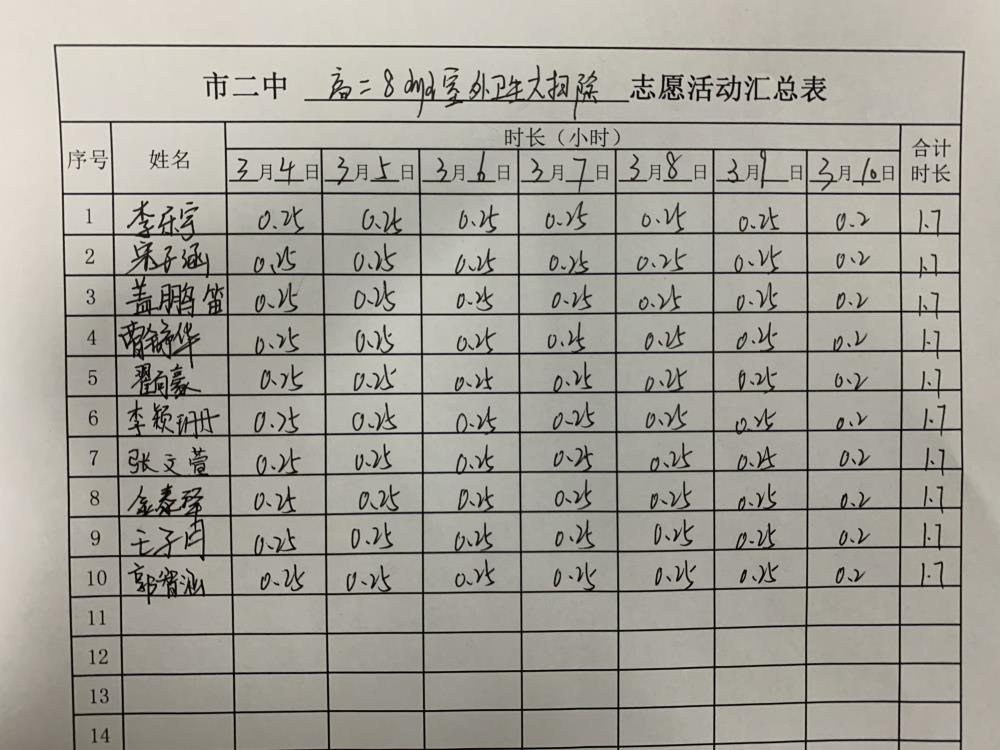 市二中 高二8班室外卫生大扫除 志愿活动汇总表
序号 姓名 时长（小时） 合计时长
3月4日 3月5日 3月6日 3月7日 3月8日 3月9日 3月10日
1 李乐宇 0.25 0.25 0.25 0.25 0.25 0.25 0.2 1.7
2 宋子涵 0.25 0.25 0.25 0.25 0.25 0.25 0.2 1.7
3 盖鹏笛 0.25 0.25 0.25 0.25 0.25 0.25 0.2 1.7
4 0.25 0.25 0.25 0.25 0.25 0.25 0.2 1.7
5 0.25 0.25 0.25 0.25 0.25 0.25 0.2 1.7
6 李颖珊 0.25 0.25 0.25 0.25 0.25 0.25 0.2 1.7
7 张文萱 0.25 0.25 0.25 0.25 0.25 0.25 0.2 1.7
8 金泰 0.25 0.25 0.25 0.25 0.25 0.25 0.2 1.7
9 王子 0.25 0.25 0.25 0.25 0.25 0.25 0.2 1.7
10 郭智涵 0.25 0.25 0.25 0.25 0.25 0.25 0.2 1.7
11
12
13
14